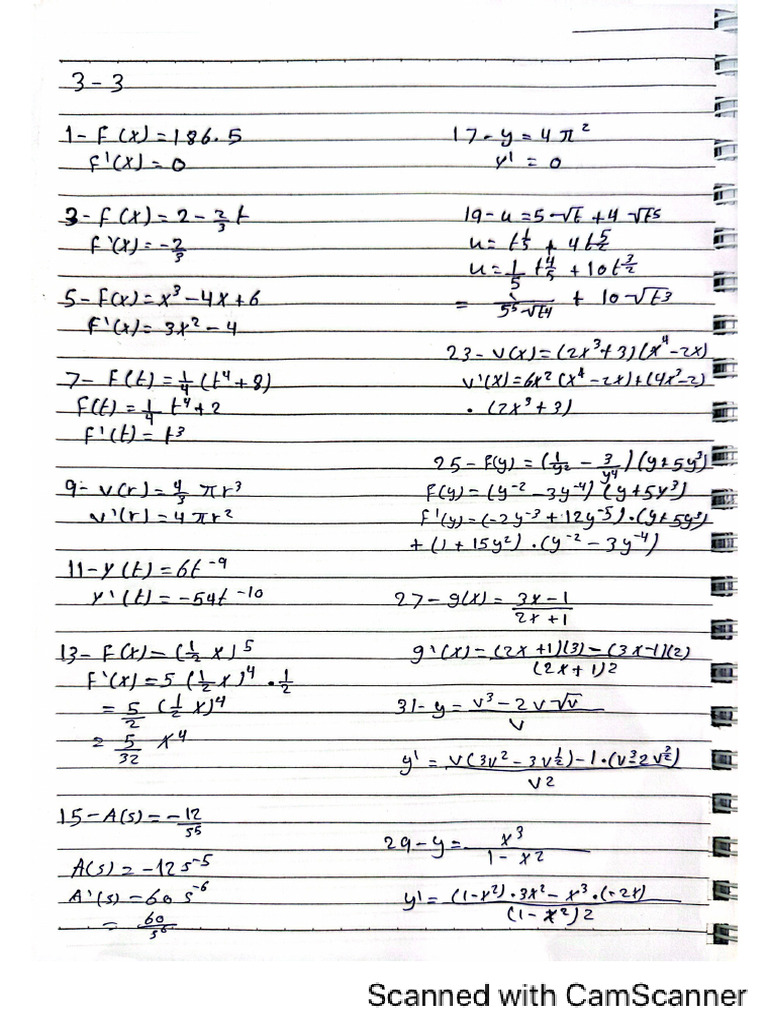 3-3
1- F(x)=186.5
F'(x)=0
3- F(x)=2-2/3 t
F'(x)=-2/3
5- F(x)=x³-4x+6
F'(x)=3x²-4
7- F(t)=1/4 (t⁴+8)
F(t)=1/4 t⁴+2
F'(t)=t³
9- V(r)=4/3 πr³
V'(r)=4πr²
11- Y(t)=6t⁻⁹
Y'(t)=-54t⁻¹⁰
13- F(x)=(1/2 x)⁵
F'(x)=5 (1/2 x)⁴ · 1/2
= 5/2 (1/2 x)⁴
= 5/32 x⁴
15- A(s)=-12/s⁵
A(s)=-12s⁻⁵
A'(s)=60 s⁻⁶
= 60/s⁶
17- y=4π²
y'=0
19- u=5√t+4√t5
u=t^1/5+4t^5/2
u=1/5 t^4/5+10t^3/2
= 1/5⁵√t4 + 10√t3
23- V(x)=(2x³+3)(x⁴-2x)
V'(x)=6x²(x⁴-2x)+(4x³-2)
·(2x³+3)
25- F(y)=(1/y²-3/y⁴)(y+5y³)
F(y)=(y⁻²-3y⁻⁴)(y+5y³)
F'(y)=(-2y⁻³+12y⁻⁵)·(y+5y³)
+(1+15y²)·(y⁻²-3y⁻⁴)
27- g(x)=3x-1/2x+1
g'(x)=(2x+1)(3)-(3x-1)(2)/(2x+1)2
31- y=v³-2v√v/v
y'=v(3v²-3v^1/2)-1·(v³-2v^3/2)/v2
29- y=x³/1-x2
y'=(1-x²)·3x²-x³·(-2x)/(1-x²)2
Scanned with CamScanner